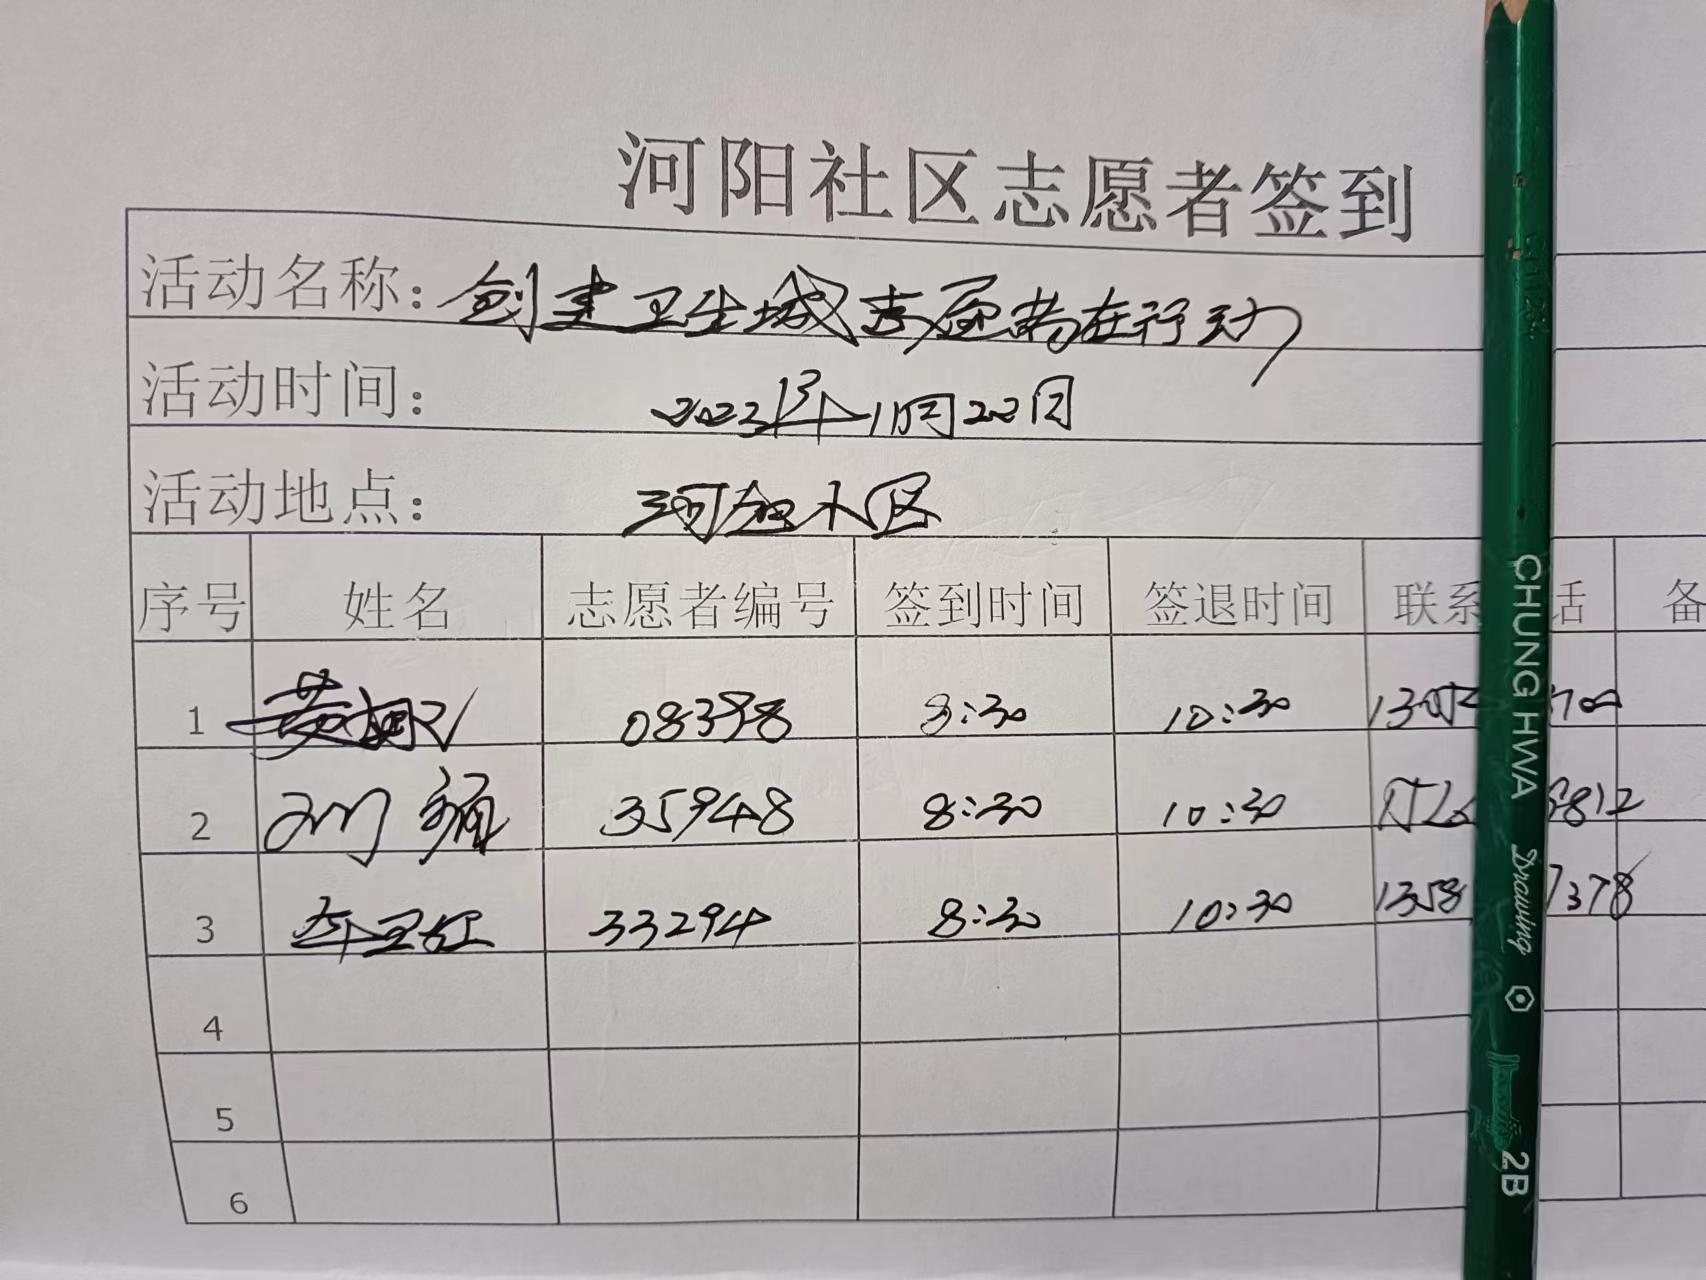 河阳社区志愿者签到
活动名称：创建卫生城志愿者在行动
活动时间：2023年11月22日
活动地点：河阳小区
序号 姓名 志愿者编号 签到时间 签退时间 联系 话 备
1 08398 8:30 10:30
2 35948 8:30 10:30 9812
3 33294 8:30 10:30 1358 7378
4
5
6
CHUNG HWA Drawing 2B